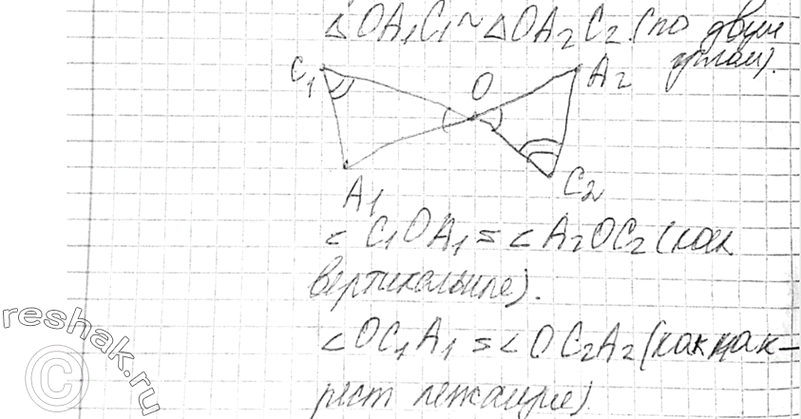 △OA₁C₁ ~ △OA₂C₂ (по двум
углам).
C₁
O
A₂
A₁
C₂
< C₁OA₁ = < A₂OC₂ (как
вертикальные).
< OC₁A₁ = < OC₂A₂ (как нак-
рест лежащие)
reshak.ru
©